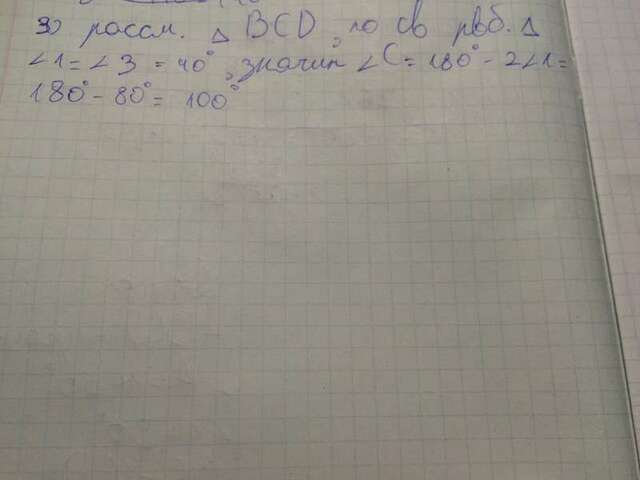 3) рассм. △ BCD, по св рвб. △
∠1 = ∠3 = 40°, значит ∠C = 180° - 2∠1 =
180° - 80° = 100°